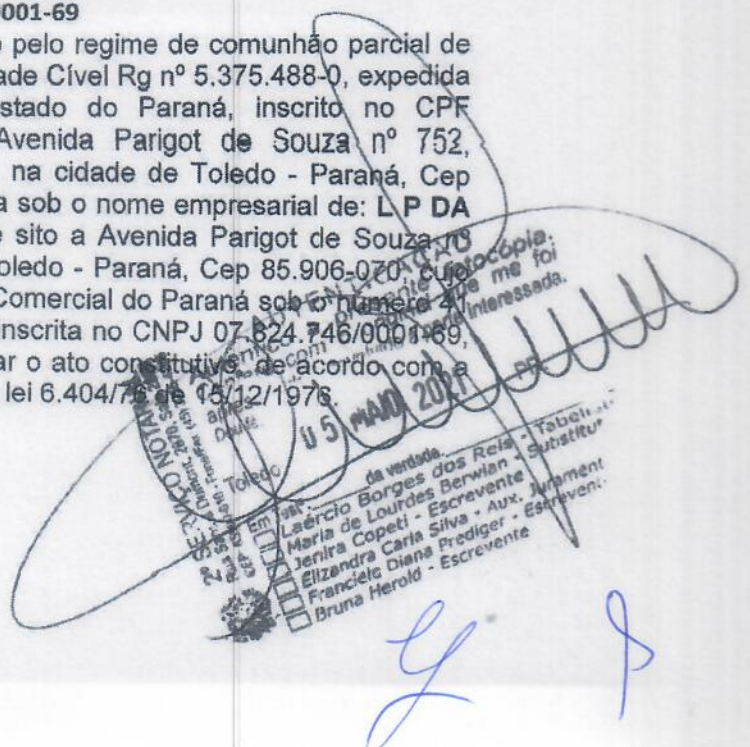 001-69
pelo regime de comunhão parcial de
ade Cível Rg nº 5.375.488-0, expedida
stado do Paraná, inscrito no CPF
Avenida Parigot de Souza nº 752,
na cidade de Toledo - Paraná, Cep
a sob o nome empresarial de: L P DA
e sito a Avenida Parigot de Souza nº
oledo - Paraná, Cep 85.906-070, cujo
Comercial do Paraná sob o número 41
inscrita no CNPJ 07.824.746/0001-69,
ar o ato constitutivo, de acordo com a
lei 6.404/76 de 15/12/1976.
presente fotocópia.
que me foi
interessada.
05 MAIO 2021
PR
Toledo
Em da verdade
Laércio Borges dos Reis - Tabeli
Maria de Lourdes Berwian - Substitu
Jenira Copeti - Escrevente
Elizandra Carla Silva - Aux. Jurament
Franciele Diana Prediger - Escrevent
Bruna Herold - Escrevente
2º SERVIÇO NOTA